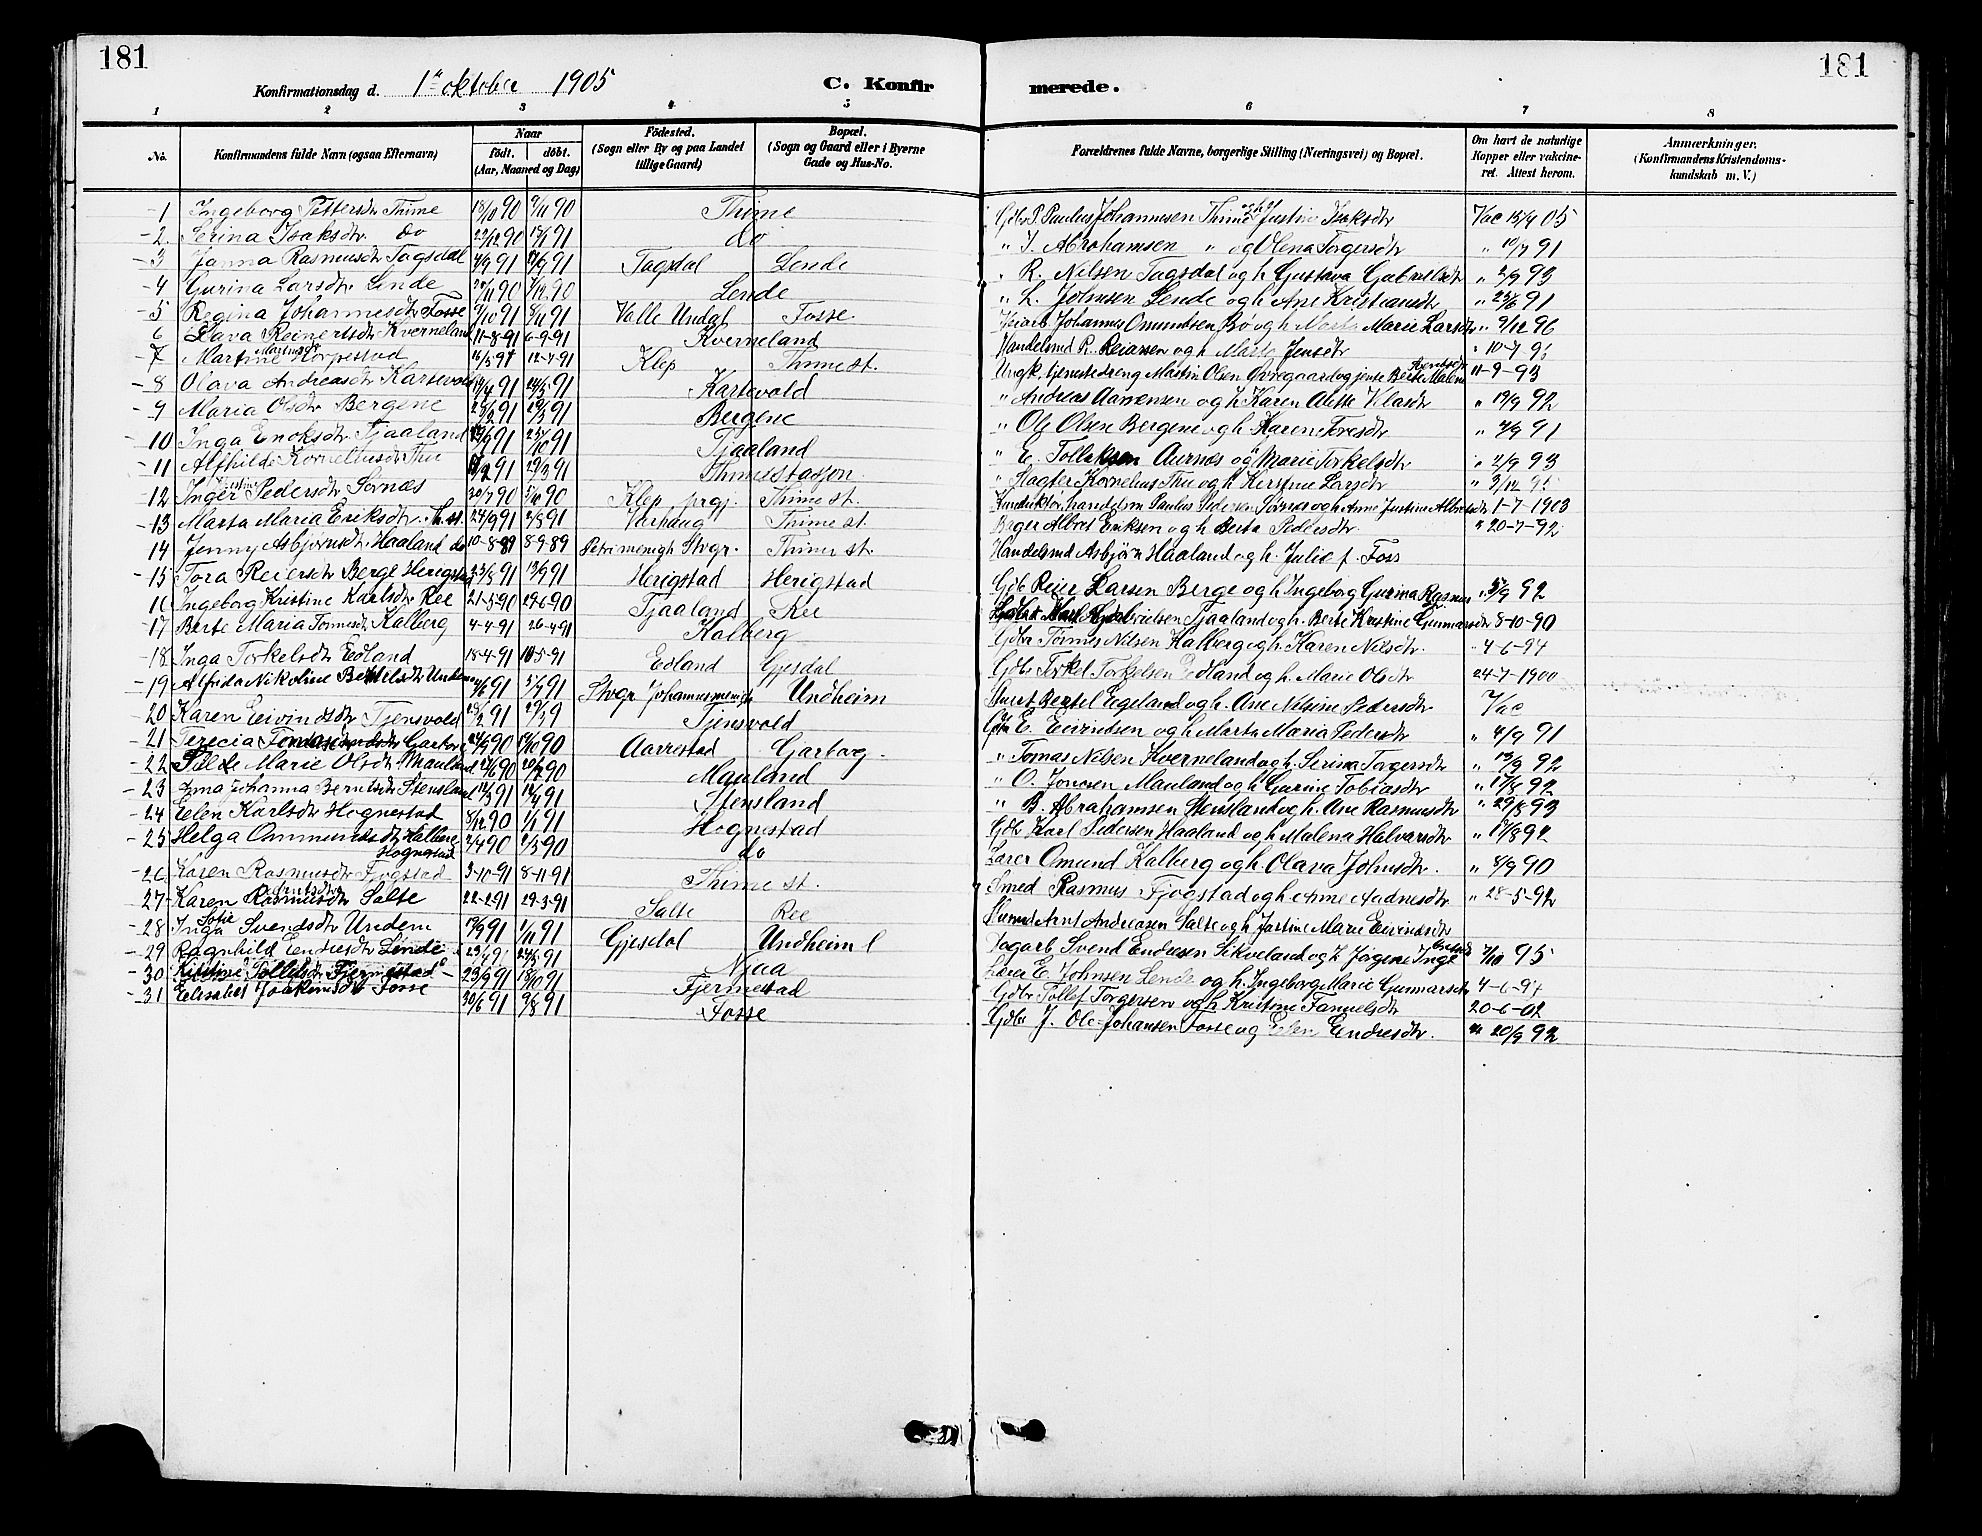 181
181
Konfirmationsdag d. 1ste oktober 1905
C. Konfirmerede.
1 2 3 4 5 6 7 8
No. Konfirmandens fulde Navn (ogsaa Efternavn) Naar födt. döbt. (Aar, Maaned og Dag) Födested. (Sogn eller By og paa Landet tillige Gaard) Bopæl. (Sogn og Gaard eller i Byerne Gade og Hus-No. Forældrenes fulde Navne, borgerlige Stilling (Næringsvei) og Bopæl. Om havt de naturlige Kopper eller vakcineret. Attest herom. Anmærkninger. (Konfirmandens Kristendomskundskab m. V.)
1 Ingeborg Pettersdtr Thime 18/10 90 9/11 90 Thime Gdbr P. Paulus Johannesen Thime og h Justine Isaksdtr Vac 15/9 05
2. Serina Isaksdtr do 29/12 90 91 do " I. Abrahamsen " og Olena Torgersdtr " 10/7 91
3 Janna Rasmusdtr Tagsdal 4/9 91 27/9 91 Tagsdal Lende " R. Nilsen Tagsdal og h Gustava Gabrielsdtr " 2/9 93
4 Gurina Larsdtr Lende 11 90 7/12 90 Lende " L. Johnsen Lende og h Ane Kristiansdtr " 25/6 91
5 Regina Johannesdtr Fosse 9/10 91 11 91 Valle Undal Fosse Johannes Omundsen Bø og h Marie Larsdtr " 9/12 96
6 Lava Reinertsdtr Kverneland 11-8-91 6-9-91 Kverneland Handelsmd R. Reiarsen og h Marte Jensdtr " 10-7 9
7 Martine Martinsdtr Horpestad 16/3 91 12-4-91 Klep Thime st. Ungk. tjenestedreng Martin Olsen Øvregaard og jente Berte Malene 11-9-93
8 Olava Andreasdtr Kartevold 4 91 24/5 91 Kartevold " Andreas Aanensen og h Karen Alette Klasdtr " 19/9 92
9 Maria Olsdtr Bergene 25/2 91 29/3 91 Bergene " Ole Olsen Bergene og h Karen Toresdtr " 4/9 91
10 Inga Enoksdtr Tjaaland 9 91 25/10 91 Tjaaland " E. Tollaksen Aurnes og Marie Torkelsdtr " 2/9 93
11 Alfhilde Korneliusdtr Thu 2 91 29/3 91 Thimestasjon " Slagter Kornelius Thu og h Kerstine Larsdtr " 3/12 95
12 Inger Pedersdtr Sørnæs 30/7 90 5/10 90 Klep prgj. Thime st. Konduktør, handelsm Paulus Pedersen Sørnæs og h Anne Justine Albretsdtr 1-7-1903
13 Marta Maria Eriksdtr Th. st. 24/9 91 91 Varhaug Thime st. Bager Albret Eriksen og h Berta Pedersdtr " 20-7-92
14 Jenny Asbjørnsdtr Haaland do 10-8-89 8-9-89 Petrimenigh Stvgr. Thime st. Handelsmd Asbjørn Haaland og h. Julie f. Foss
15 Tora Reiersdtr Berge Herigstad 23/8 91 13/9 91 Herigstad Herigstad Gdb Reier Larsen Berge og h Ingeborg Gurina Rasmus " 9 92
16 Ingeborg Kristine Karlsdtr Ree 21-5-90 29-6-90 Tjaaland Ree Karl Gabrielsen Tjaaland og h. Berte Kristine Gunnarsdtr 8-10-90
17 Berte Maria Tønnesdtr Kalberg 4-4-91 26-4-91 Kalberg Gdbr Tønnes Nilsen Kalberg og h Karen Nilsdtr. " 4-6-94
18 Inga Torkelsdtr Edland 18-4-91 10-5-91 Edland Gjesdal Gdbr Torkel Torkelsen Edland og h. Marie Olsdtr 24-7-1900
19 Alfrida Nikoline Bertelsdtr Undem 4/6 91 5/7 91 Stvgr Johannesmenigh Undheim Bertel Egeland og h. Ane Nilsine Pedersdtr Vac
20 Karen Eivindsdtr Tjensvold 25/2 91 29/3 9 Tjensvold E. Eivindsen og h Marta Maria Pedersdtr " 4/9 91
21 Terecia Tomasdtr Garborg 24/9 90 19/10 90 Aarrestad Garborg " Tomas Nilsen Kverneland og h. Serina Tagersdtr " 19/9 92
22 Marie Olsdtr Mauland 6 90 20/7 90 Mauland " O. Jonasen Mauland og h Gurine Tobiasdtr " 17/8 92
23 Ana Johanna Berntsdtr Stensland 12/3 91 12/4 91 Stensland " B. Abrahamsen Stensland og h. Ane Rasmusdtr " 29/8 93
24 Elen Karlsdtr Hognestad 8/12 90 1/1 91 Hognestad Gdbr Karl Pedersen Haaland og h Malena Halvarsdtr " 17/8 92
25 Helga Ommundsdtr Kalberg Hognestad 2/4 90 /5 90 do Lærer Omund Kalberg og h. Olava Johnsdtr. " 8/9 90
26 Karen Rasmusdtr Fjogstad 3-10-91 8-11-91 Thime st. Smed Rasmus Fjogstad og h Anne Aadnesdtr " 28-5-92
27 Karen Arntsdtr Salte 22-2 91 29-3-91 Salte Ree Arnt Andreasen Salte og h Justine Marie Eivindsdtr
28 Inga Sofie Svendsdtr Undem 19/9 91 1/11 91 Gjesdal Undheim Svend Endresen Sikveland og h Jørgine Inge " 7/10 95
29 Ragnhild Eendresdtr Lende 23/7 91 24/8 91 Njaa Lærer E. Johnsen Lende og h. Ingeborg Marie Gunnarsdtr 4-6-97
30 Kristine Tollefsdtr Fjermestad 23/9 91 18/10 91 Fjermestad Gdbr Tollef Torgersen og h Kristine Fanuelsdtr 20-6-02
31 Elisabet Joakimsdtr Fosse 30/6 91 9/8 91 Fosse Gdbr J. Ole Johansen Fosse og Elen Endresdtr. " 20/9 92